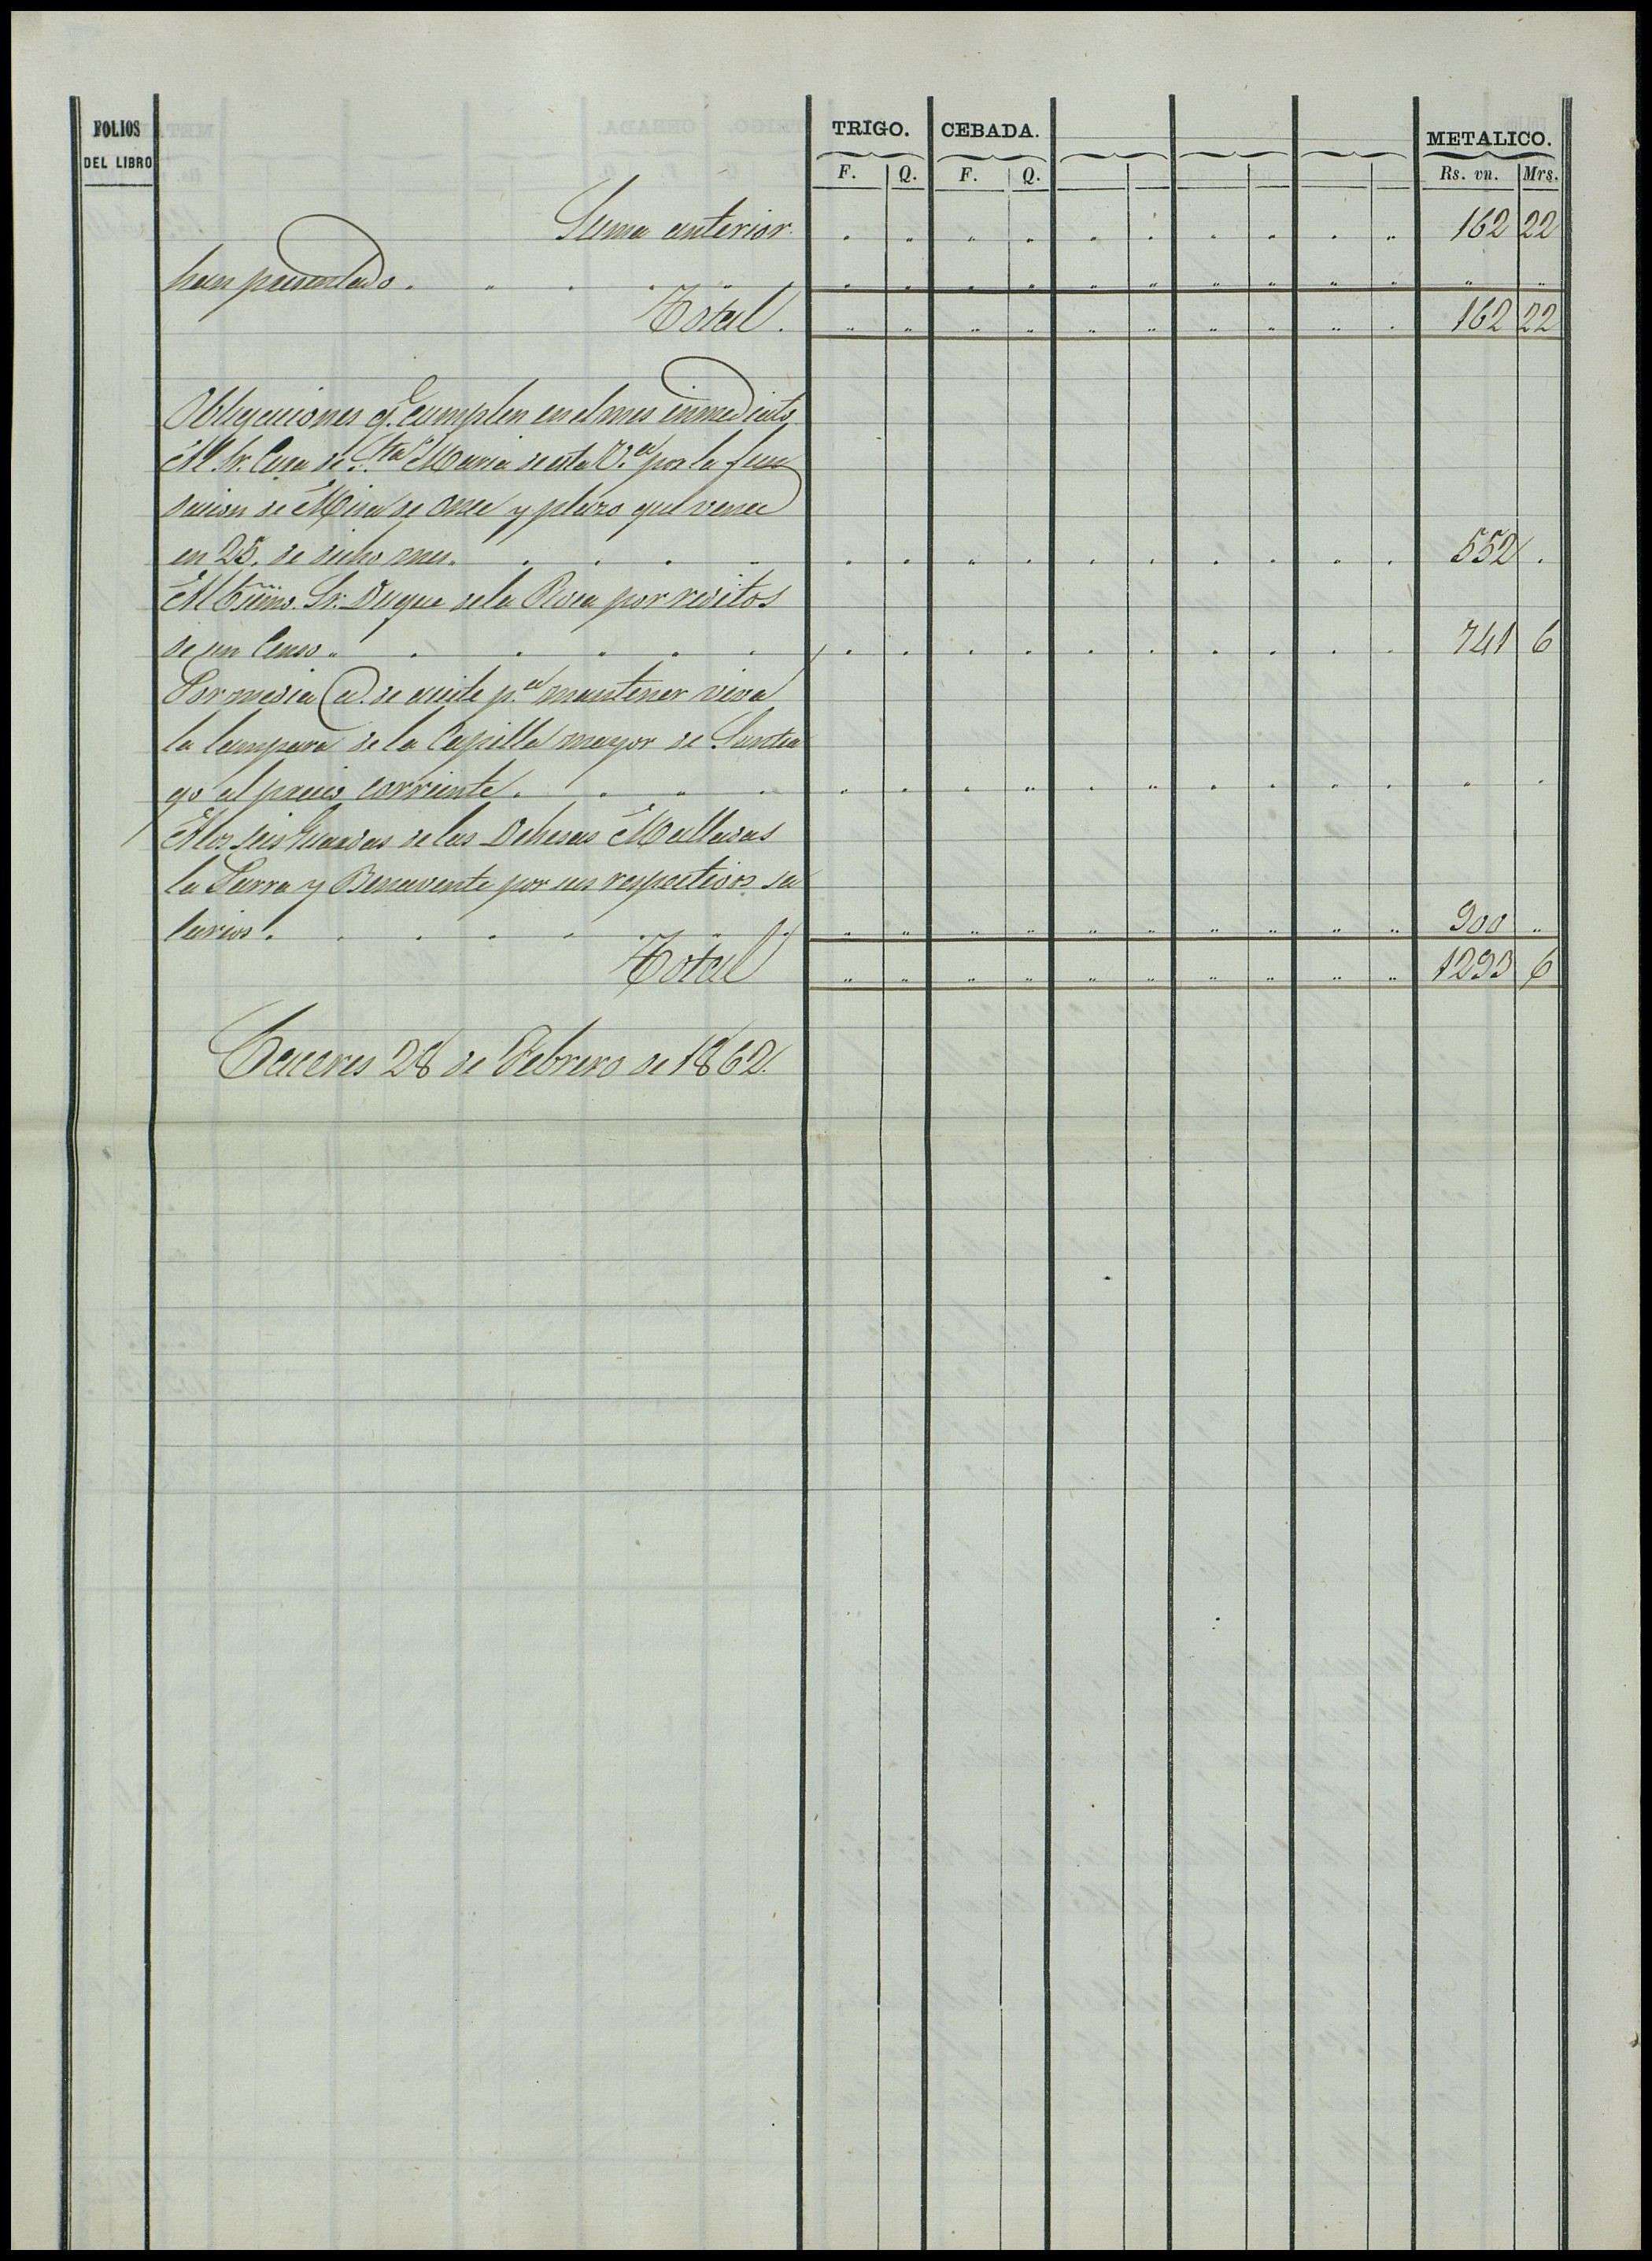 FOLIOS DEL LIBRO
TRIGO. CEBADA. METALICO.
F. Q. F. Q. Rs. vn. Mrs.
Suma anterior. 162 22
han presentado.
Total. 162 22
Obligaciones q.e cumplen en el mes inmediato
Al Sr. Cura de Sta Maria de esta V.a por la fun
dacion de Misa de once y plazo que vence
en 25. de dicho mes. 552
Al Exmo. Sr. Duque de la Roca por reditos
de un Censo. 741 6
Por media @. de aceite p.a mantener viva
la lampara de la Capilla mayor de Santia
go al precio corriente.
A los seis Guardas de las Dehesas Malladas
la Parra y Benavente por sus respectivos sa
larios. 900
Total 1293 6
Caceres 28 de Febrero de 1862.